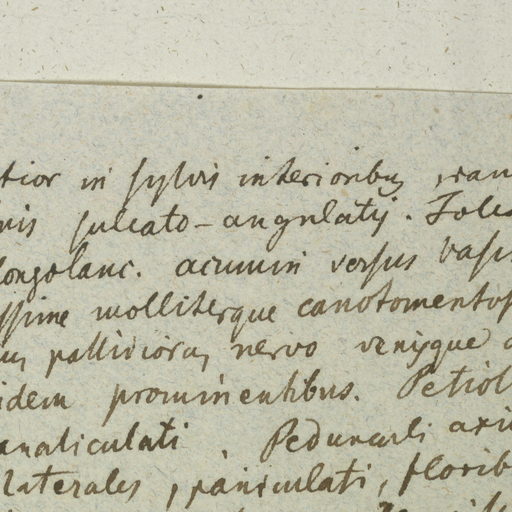 tior in sylvis interioribus, ram
nis sulcato-angulatis. Folia
longolanc. acumin versus basi
ssime molliterque canotomentos
um pallidiora, nervo venisque
idem prominentibus. Petiol
analiculati, Pedunculi axi
laterales, paniculati, florib